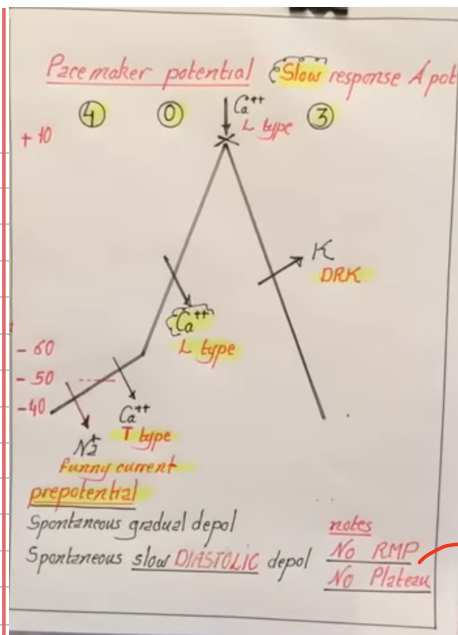 Pacemaker potential Slow response A pot
4 0 Ca++ 3
L type
+10
K
DRK
Ca++
L type
- 60
- 50
-40
Ca++
T type
Na+
Funny current
prepotential
Spontaneous gradual depol
notes
No RMP
Spontaneous slow DIASTOLIC depol
No Plateau